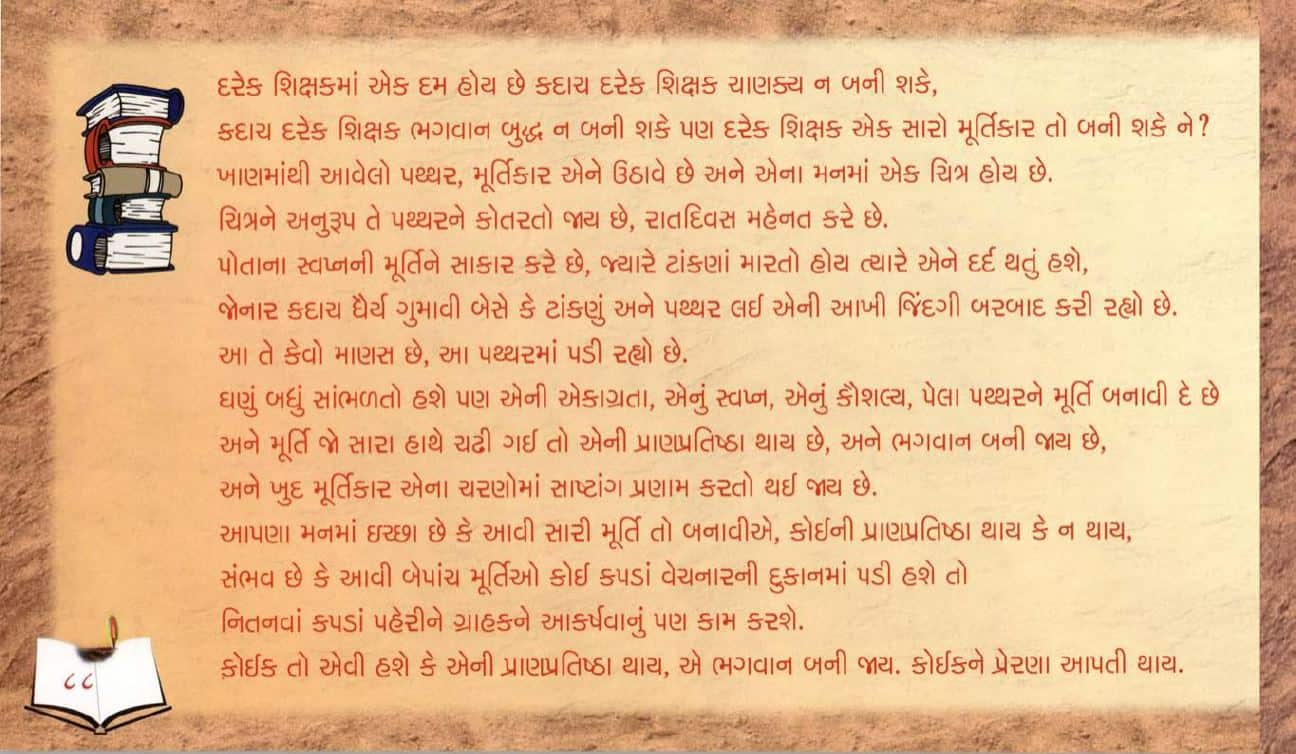 દરેક શિક્ષકમાં એક દમ હોય છે કદાચ દરેક શિક્ષક ચાણક્ય ન બની શકે,
કદાચ દરેક શિક્ષક ભગવાન બુદ્ધ ન બની શકે પણ દરેક શિક્ષક એક સારો મૂર્તિકાર તો બની શકે ને?
ખાણમાંથી આવેલો પથ્થર, મૂર્તિકાર એને ઉઠાવે છે અને એના મનમાં એક ચિત્ર હોય છે.
ચિત્રને અનુરૂપ તે પથ્થરને કોતરતો જાય છે, રાતદિવસ મહેનત કરે છે.
પોતાના સ્વપ્નની મૂર્તિને સાકાર કરે છે, જ્યારે ટાંકણાં મારતો હોય ત્યારે એને દર્દ થતું હશે,
જોનાર કદાચ ધૈર્ય ગુમાવી બેસે કે ટાંકણું અને પથ્થર લઈ એની આખી જિંદગી બરબાદ કરી રહ્યો છે.
આ તે કેવો માણસ છે, આ પથ્થરમાં પડી રહ્યો છે.
ઘણું બધું સાંભળતો હશે પણ એની એકાગ્રતા, એનું સ્વપ્ન, એનું કૌશલ્ય, પેલા પથ્થરને મૂર્તિ બનાવી દે છે
અને મૂર્તિ જો સારા હાથે ચઢી ગઈ તો એની પ્રાણપ્રતિષ્ઠા થાય છે, અને ભગવાન બની જાય છે,
અને ખુદ મૂર્તિકાર એના ચરણોમાં સાષ્ટાંગ પ્રણામ કરતો થઈ જાય છે.
આપણા મનમાં ઇચ્છા છે કે આવી સારી મૂર્તિ તો બનાવીએ, કોઈની પ્રાણપ્રતિષ્ઠા થાય કે ન થાય,
સંભવ છે કે આવી બેપાંચ મૂર્તિઓ કોઈ કપડાં વેચનારની દુકાનમાં પડી હશે તો
નિતનવાં કપડાં પહેરીને ગ્રાહકને આકર્ષવાનું પણ કામ કરશે.
કોઈક તો એવી હશે કે એની પ્રાણપ્રતિષ્ઠા થાય, એ ભગવાન બની જાય. કોઈકને પ્રેરણા આપતી થાય.
૮૮